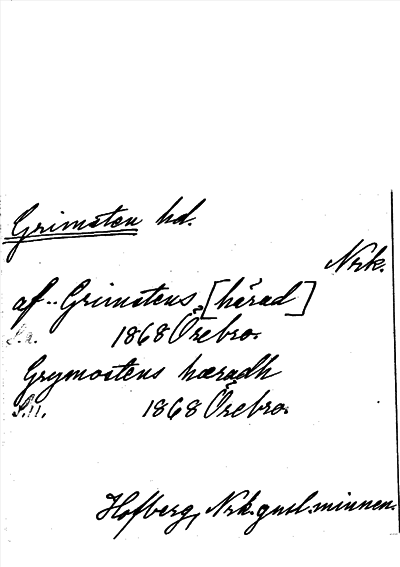 Grimsten hd.
Nrk.
af Grimstens [härad]
S. 11. 1868 Örebro.
Grymostens hæradh
S. 11. 1868 Örebro.
Hofberg, Nrk. gml. minnen.